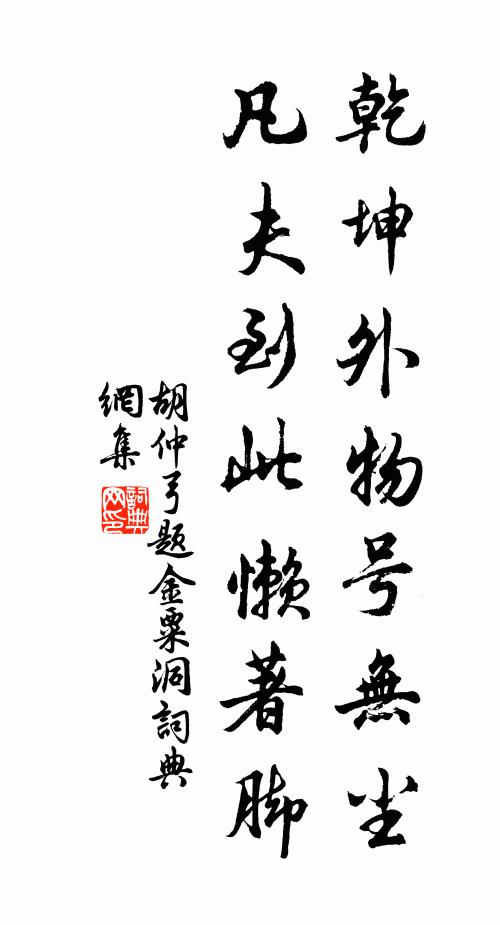 乾坤外物号無尘
凡夫到此懒著脚
胡仲弓題金粟洞詞典
網集
詞典
网印